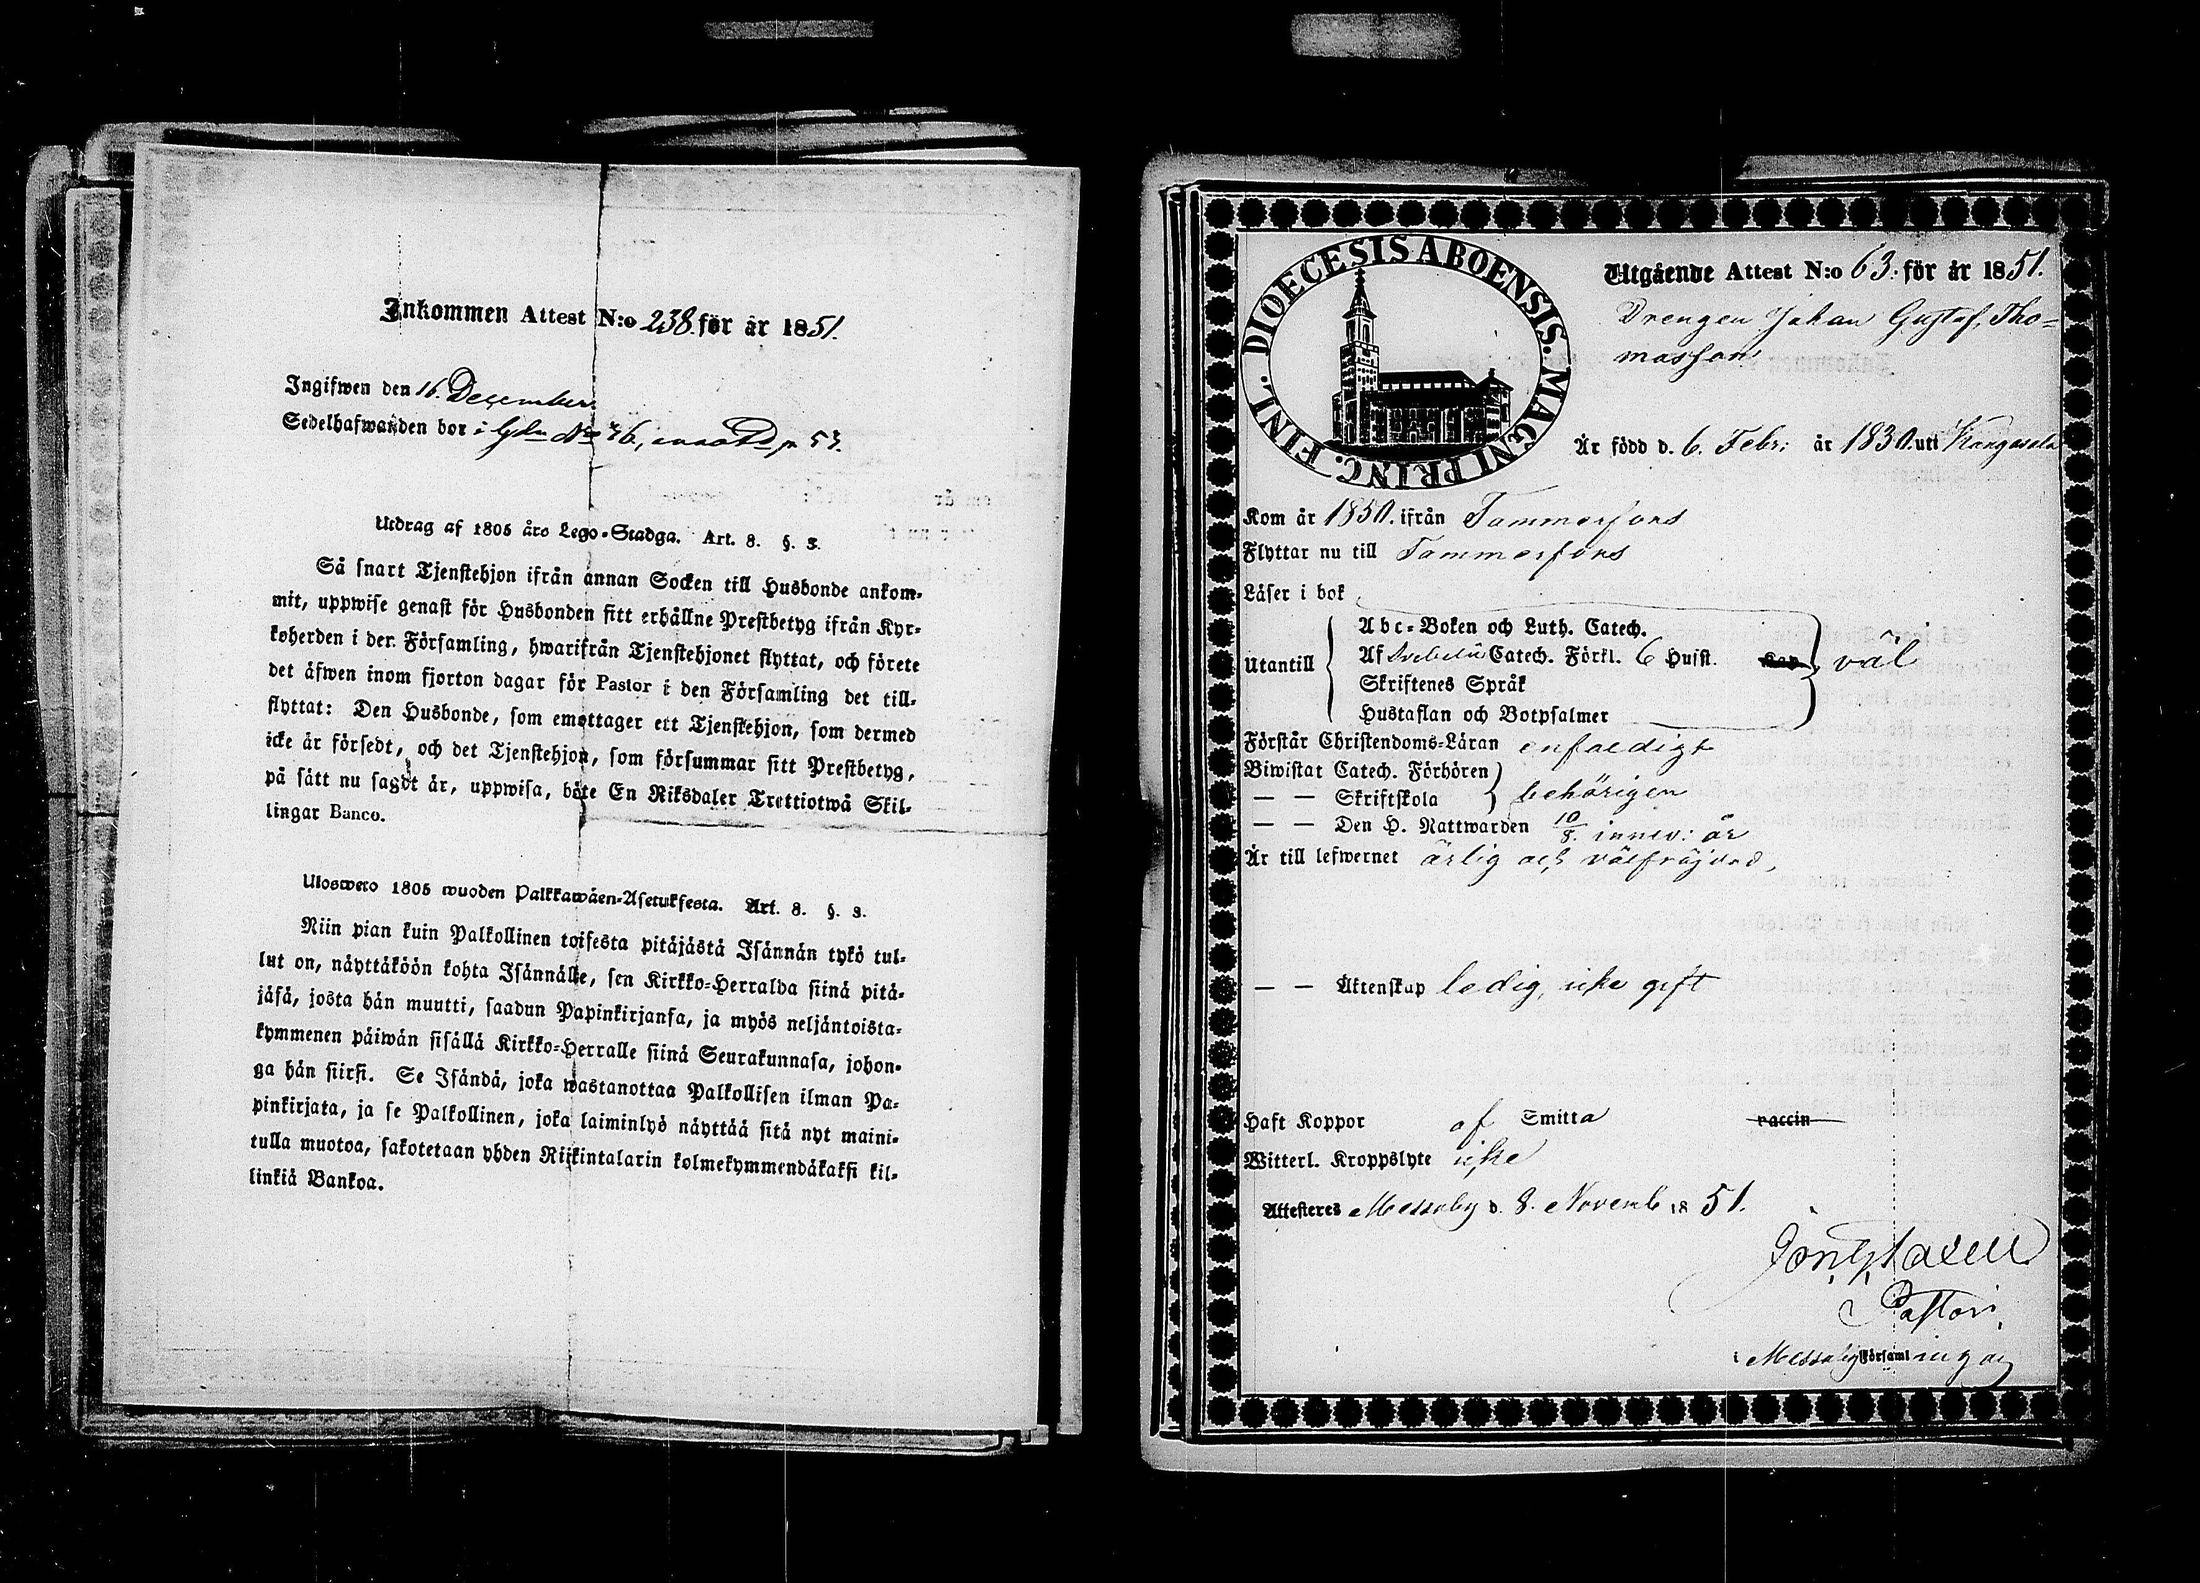 Inkommen Attest N:o 238. för år 1851.
Ingifwen den 16. December.
Sedelhafwanden bor i Gdn No 76, p 53.
Utdrag af 1805 års Lego-Stadga. Art. 8. §. 3.
Så snart Tjenstehjon ifrån annan Socken till Husbonde ankom-
mit, uppwise genast för Husbonden sitt erhållne Prestbetyg ifrån Kyr-
koherden i der Församling, hwarifrån Tjenstehjonet flyttat, och förete
det äfwen inom fjorton dagar för Pastor i den Församling det till-
flyttat: Den Husbonde, som emottager ett Tjenstehjon, som dermed
icke är försedt, och det Tjenstehjon, som försummar sitt Prestbetyg,
på sätt nu sagdt är, uppwisa, böte En Riksdaler Trettiotwå Skil-
lingar Banco.
Ulosweto 1805 wuoden Palkkawäen-Asetuksesta. Art. 8. §. 3.
Niin pian kuin Palkollinen toisesta pitäjästä Isännän tykö tul-
lut on, näyttäköön kohta Isännälle, sen Kirkko-Herralda siinä pitä-
jäsä, josta hän muutti, saadun Papinkirjansa, ja myös neljäntoista-
kymmenen päiwän sisällä Kirkko-Herralle siinä Seurakunnasa, johon-
ga hän siirsi. Se Isändä, joka wastanottaa Palkollisen ilman Pa-
pinkirjata, ja se Palkollinen, joka laiminlyö näyttää sitä nyt maini-
tulla muotoa, sakotetaan yhden Riikintalarin kolmekymmendäkaksi kil-
linkiä Bankoa.
DIOECESIS ABOENSIS. MAGNI PRINC. FINL.
Utgående Attest N:o 63. för år 1851.
Drengen Johan Gustaf, Tho=
masson
Är född d. 6. Febr: år 1830. uti Kangasala
Kom år 1850. ifrån Tammerfors
Flyttar nu till Tammerfors
Läser i bok
Abc-Boken och Luth. Catech.
Utantill Af Svebelii Catech. Förkl. 6 Husst. Kap väl
Skriftenes Språk
Hustaflan och Botpsalmer
Förstår Christendoms-Läran enfaldigt
Biwistat Catech. Förhören
— — Skriftskola behörigen
— — Den H. Nattwarden 10/8. innev: år
Är till lefwernet ärlig och välfräjdad,
— — Äktenskap ledig, icke gift
Haft Koppor af Smitta vaccin
Witterl. Kroppslyte icke
Attesteres Messuby d. 8. Novemb 1851.
Pastor.
i Messuby Församlingen